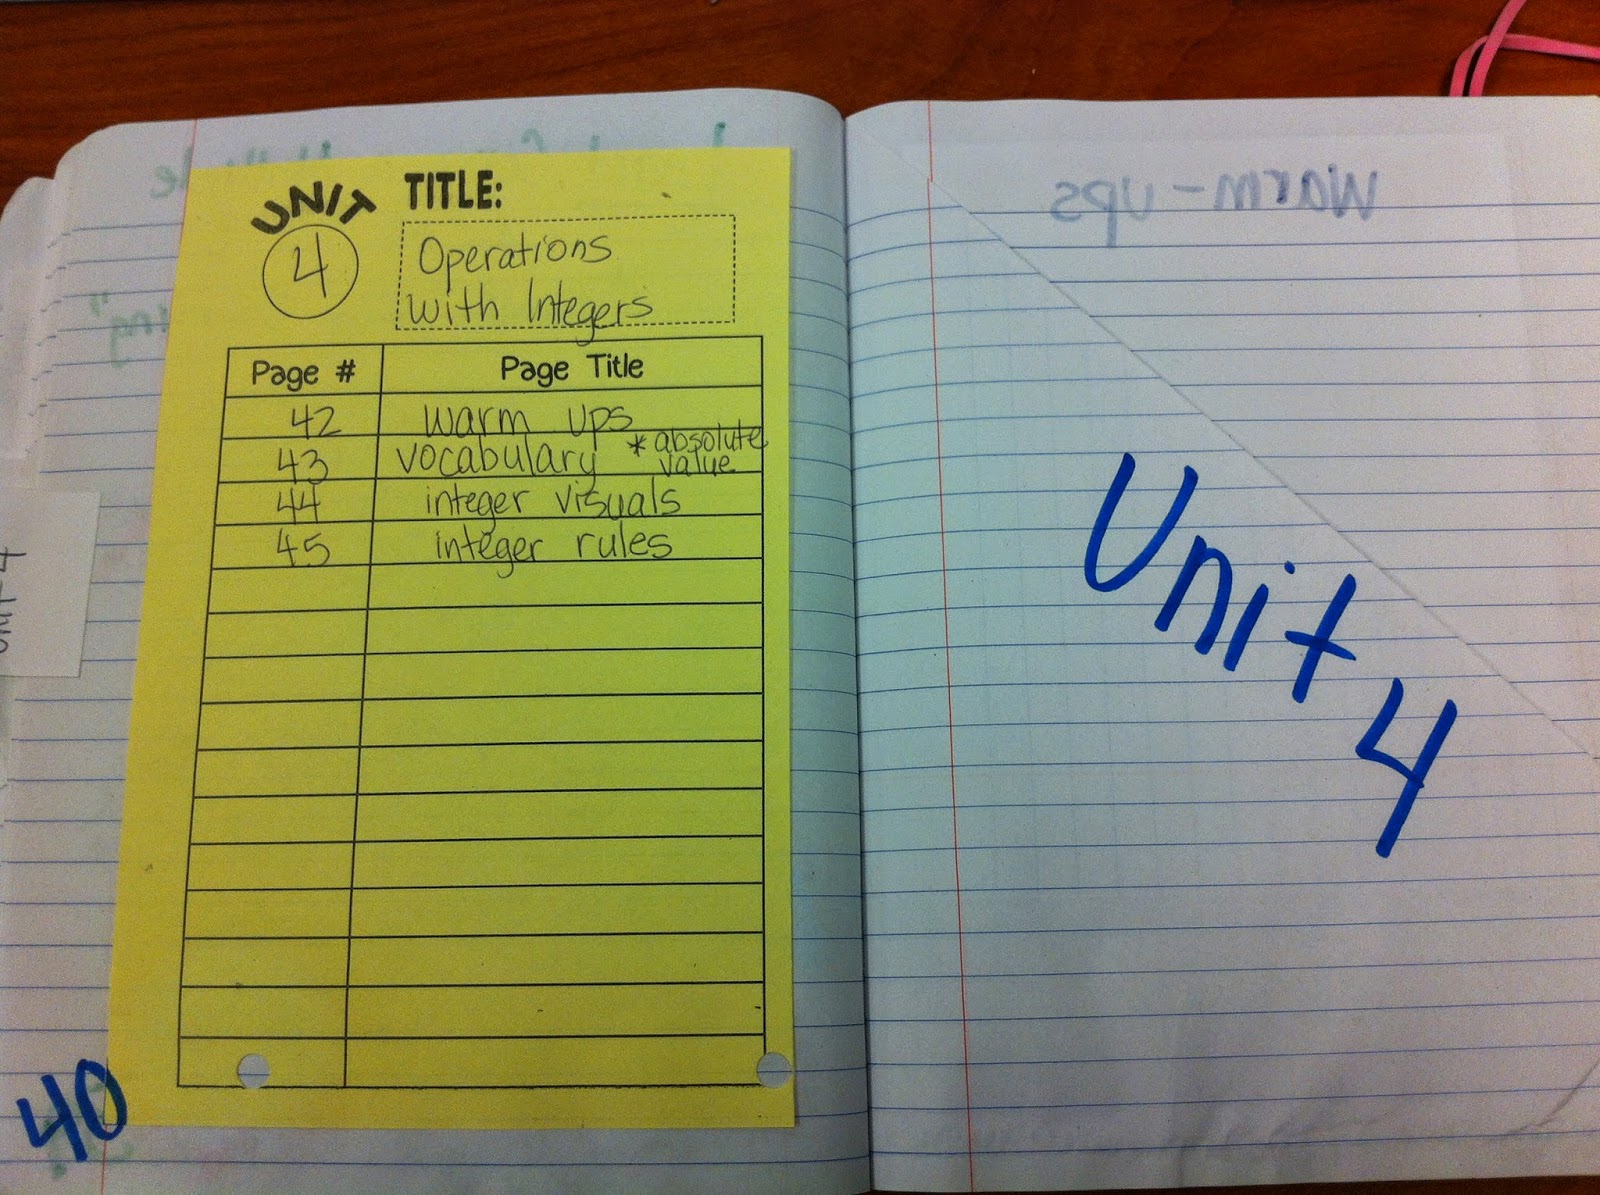 UNIT
4
TITLE:
Operations
with Integers
Page # Page Title
42 warm ups
43 vocabulary *absolute value
44 integer visuals
45 integer rules
40
unit 4
warm-ups
Unit 4